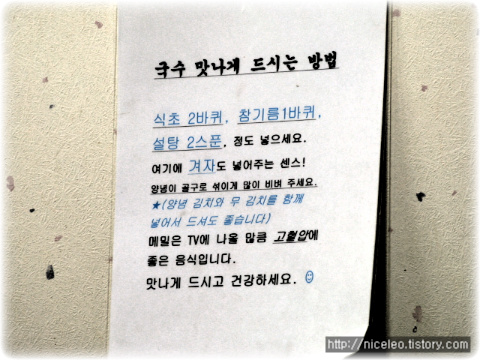 국수 맛나게 드시는 방법
식초 2바퀴, 참기름1바퀴,
설탕 2스푼, 정도 넣으세요.
여기에 겨자도 넣어주는 센스!
양념이 골구로 섞이게 많이 비벼 주세요.
★(양념 김치와 무 김치를 함께
넣어서 드셔도 좋습니다)
메밀은 TV에 나올 많큼 고혈압에
좋은 음식입니다.
맛나게 드시고 건강하세요. ☺
http://niceleo.tistory.com